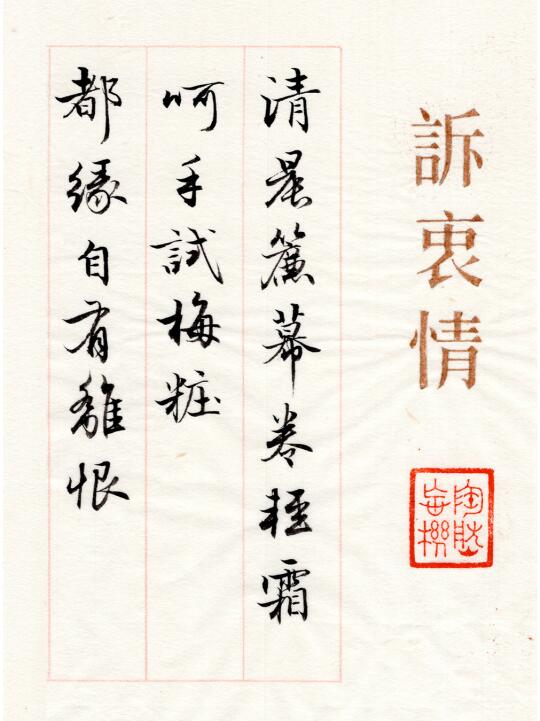 訴衷情
清晨簾幕卷輕霜
呵手試梅粧
都緣自有離恨
陶然忘機